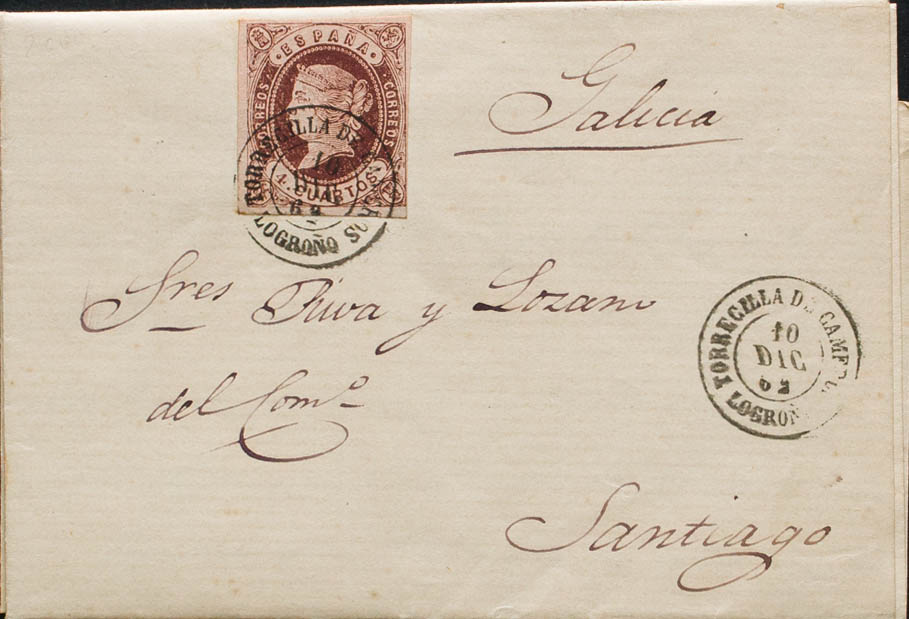 ESPAÑA
CORREOS
CORREOS
4. CUARTOS
TORRECILLA DE
10
DIC
62
LOGROÑO
Galicia
Sres Riva y Lozano
del Como
TORRECILLA DE CAMEROS
10
DIC
62
LOGROÑO
Santiago